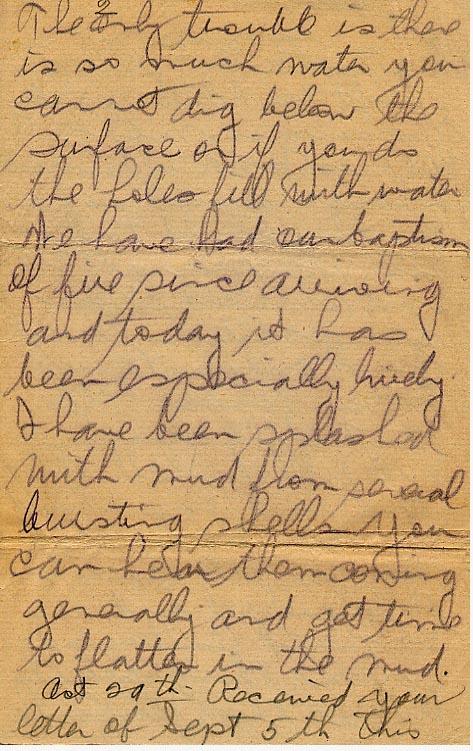 2
The only trouble is there
is so much water you
cannot dig below the
surface or if you do
the holes fill with water
We have had our baptism
of fire since arriving
and today it has
been especially lively.
I have been splashed
with mud from several
bursting shells you
can hear them coming
generally and get time
to flatten in the mud.
Oct 29th. Received your
letter of Sept 5th this